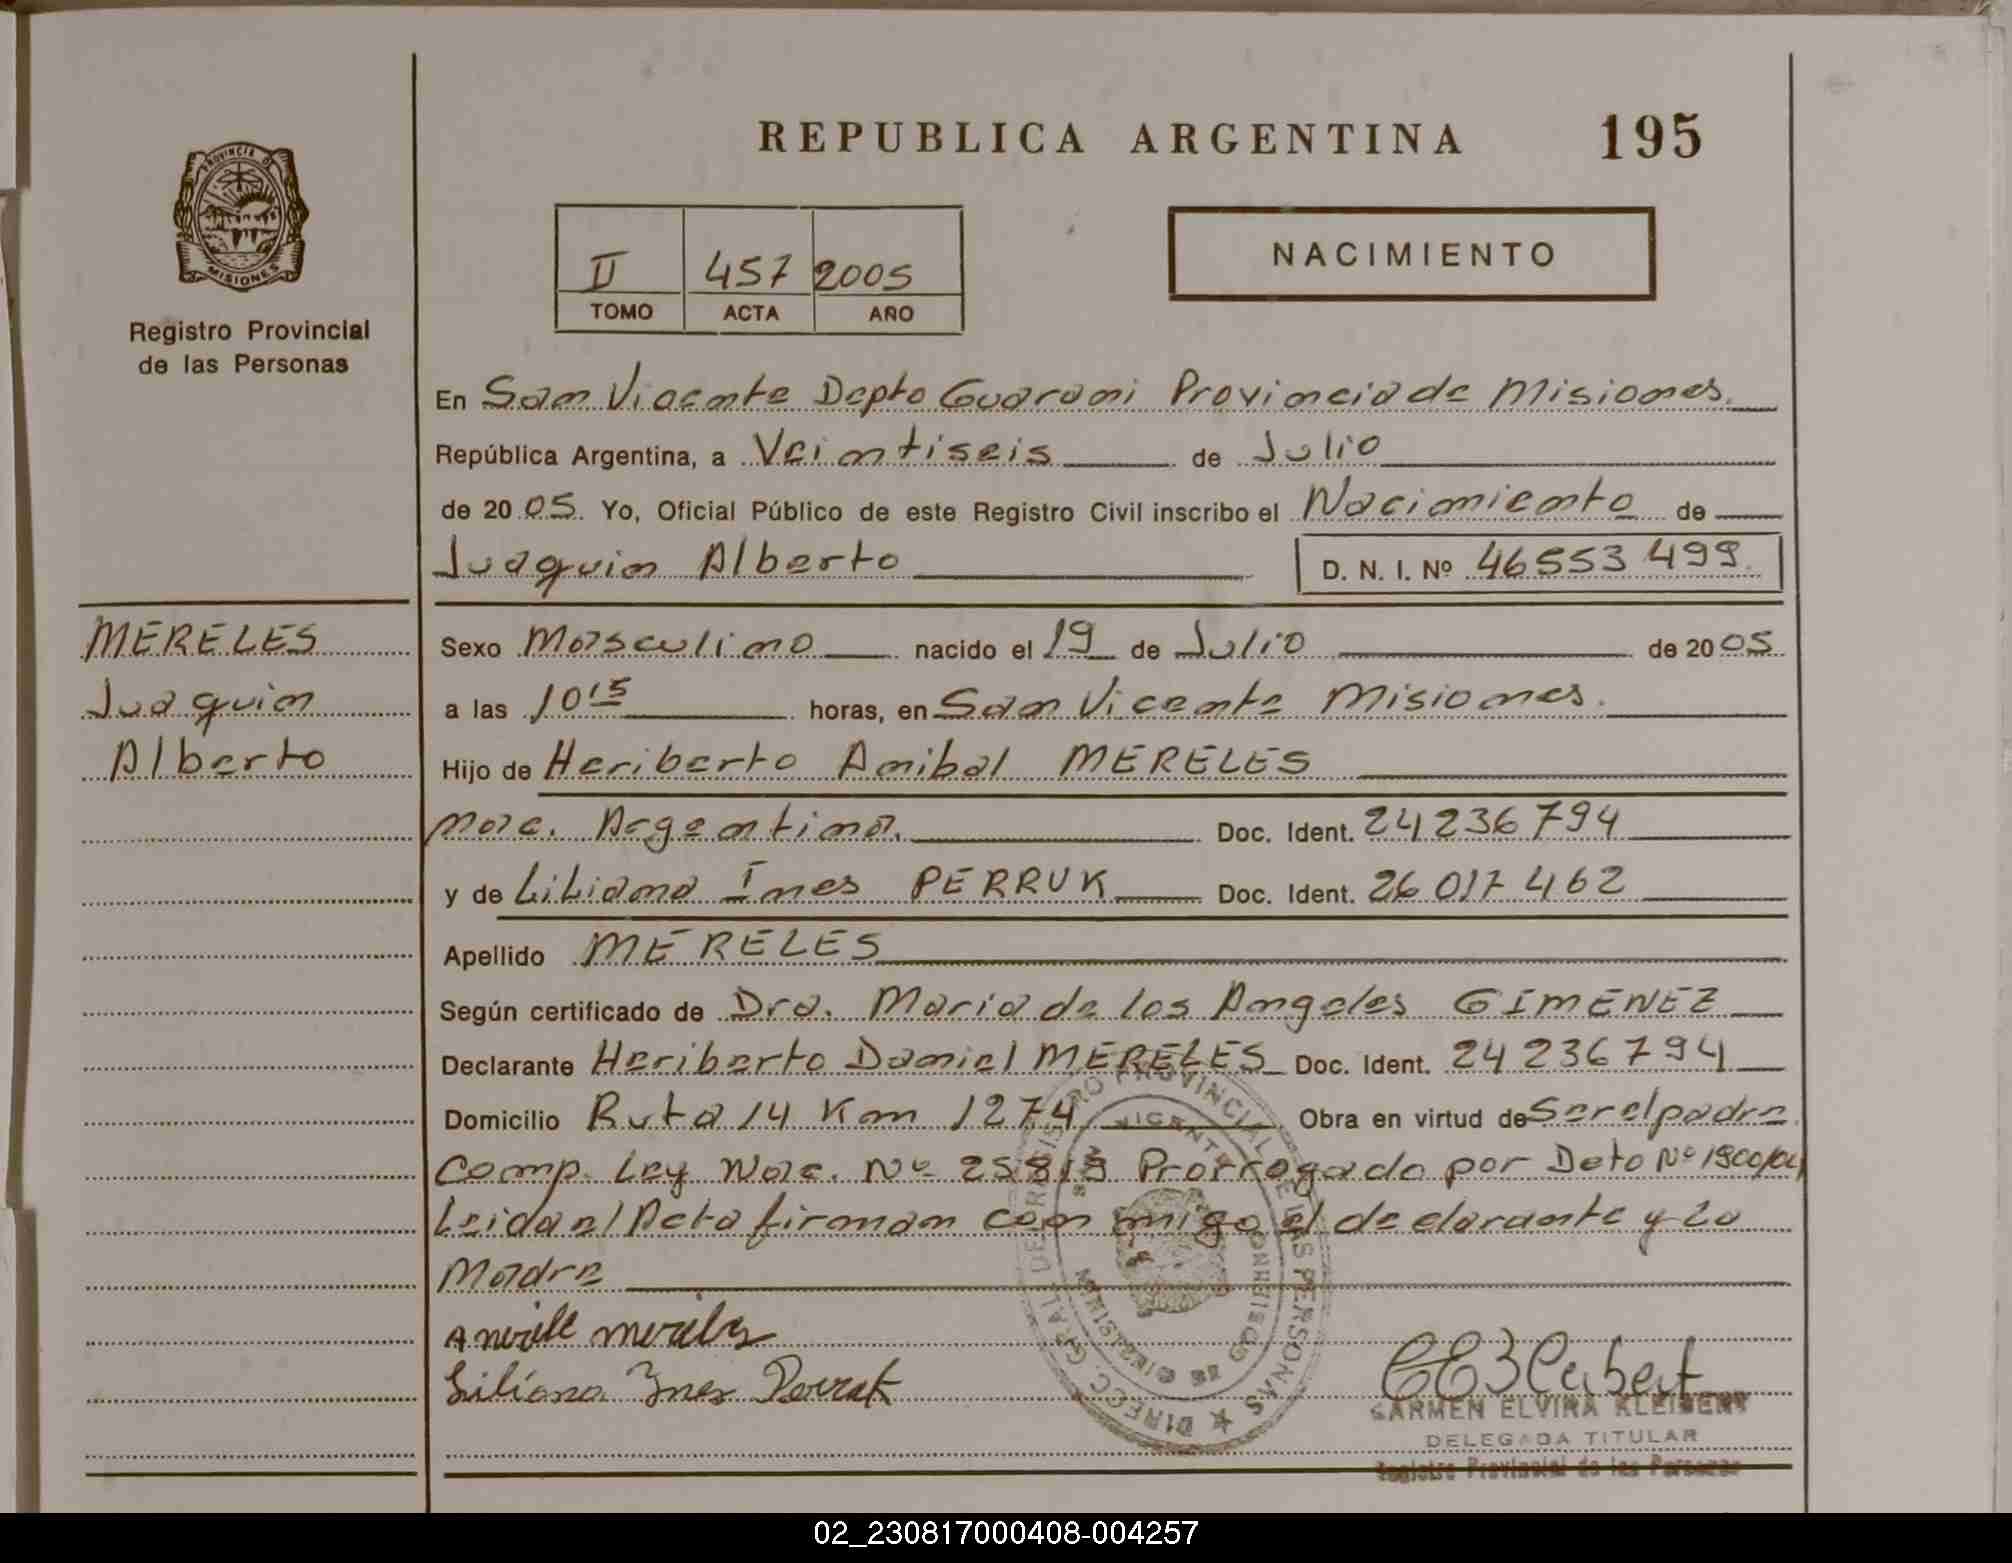 PROVINCIA DE
MISIONES
Registro Provincial
de las Personas
REPUBLICA ARGENTINA 195
II 457 2005
TOMO ACTA AÑO
NACIMIENTO
En San Vicente Depto Guarani Provincia de Misiones.
República Argentina, a Veintiseis de Julio
de 2005. Yo, Oficial Público de este Registro Civil inscribo el Nacimiento de
Juaquin Alberto D. N. I. Nº 46553499.
MERELES
Juaquin
Alberto
Sexo Masculino nacido el 19 de Julio de 2005
a las 10 15 horas, en San Vicente Misiones.
Hijo de Heriberto Anibal MERELES
nac. Argentina. Doc. Ident. 24236794
y de Liliana Ines PERRUK Doc. Ident. 26017462
Apellido MERELES
Según certificado de Dra. Maria de los Angeles GIMENEZ
Declarante Heriberto Daniel MERELES Doc. Ident. 24236794
Domicilio Ruta 14 Km 1274 Obra en virtud de Ser el padre
Comp. Ley Nac. Nº 25819 Prorrogado por Dcto Nº 1900/04
Leida el Acta firman con migo el declarante y La
Madre
Liliana Ines Perruk
DIREC. GRAL. DEL REGISTRO PROVINCIAL DE LAS PERSONAS
SAN VICENTE
MISIONES
CARMEN ELVIRA KLEIBERT
DELEGADA TITULAR
Registro Provincial de las Personas
02_230817000408-004257